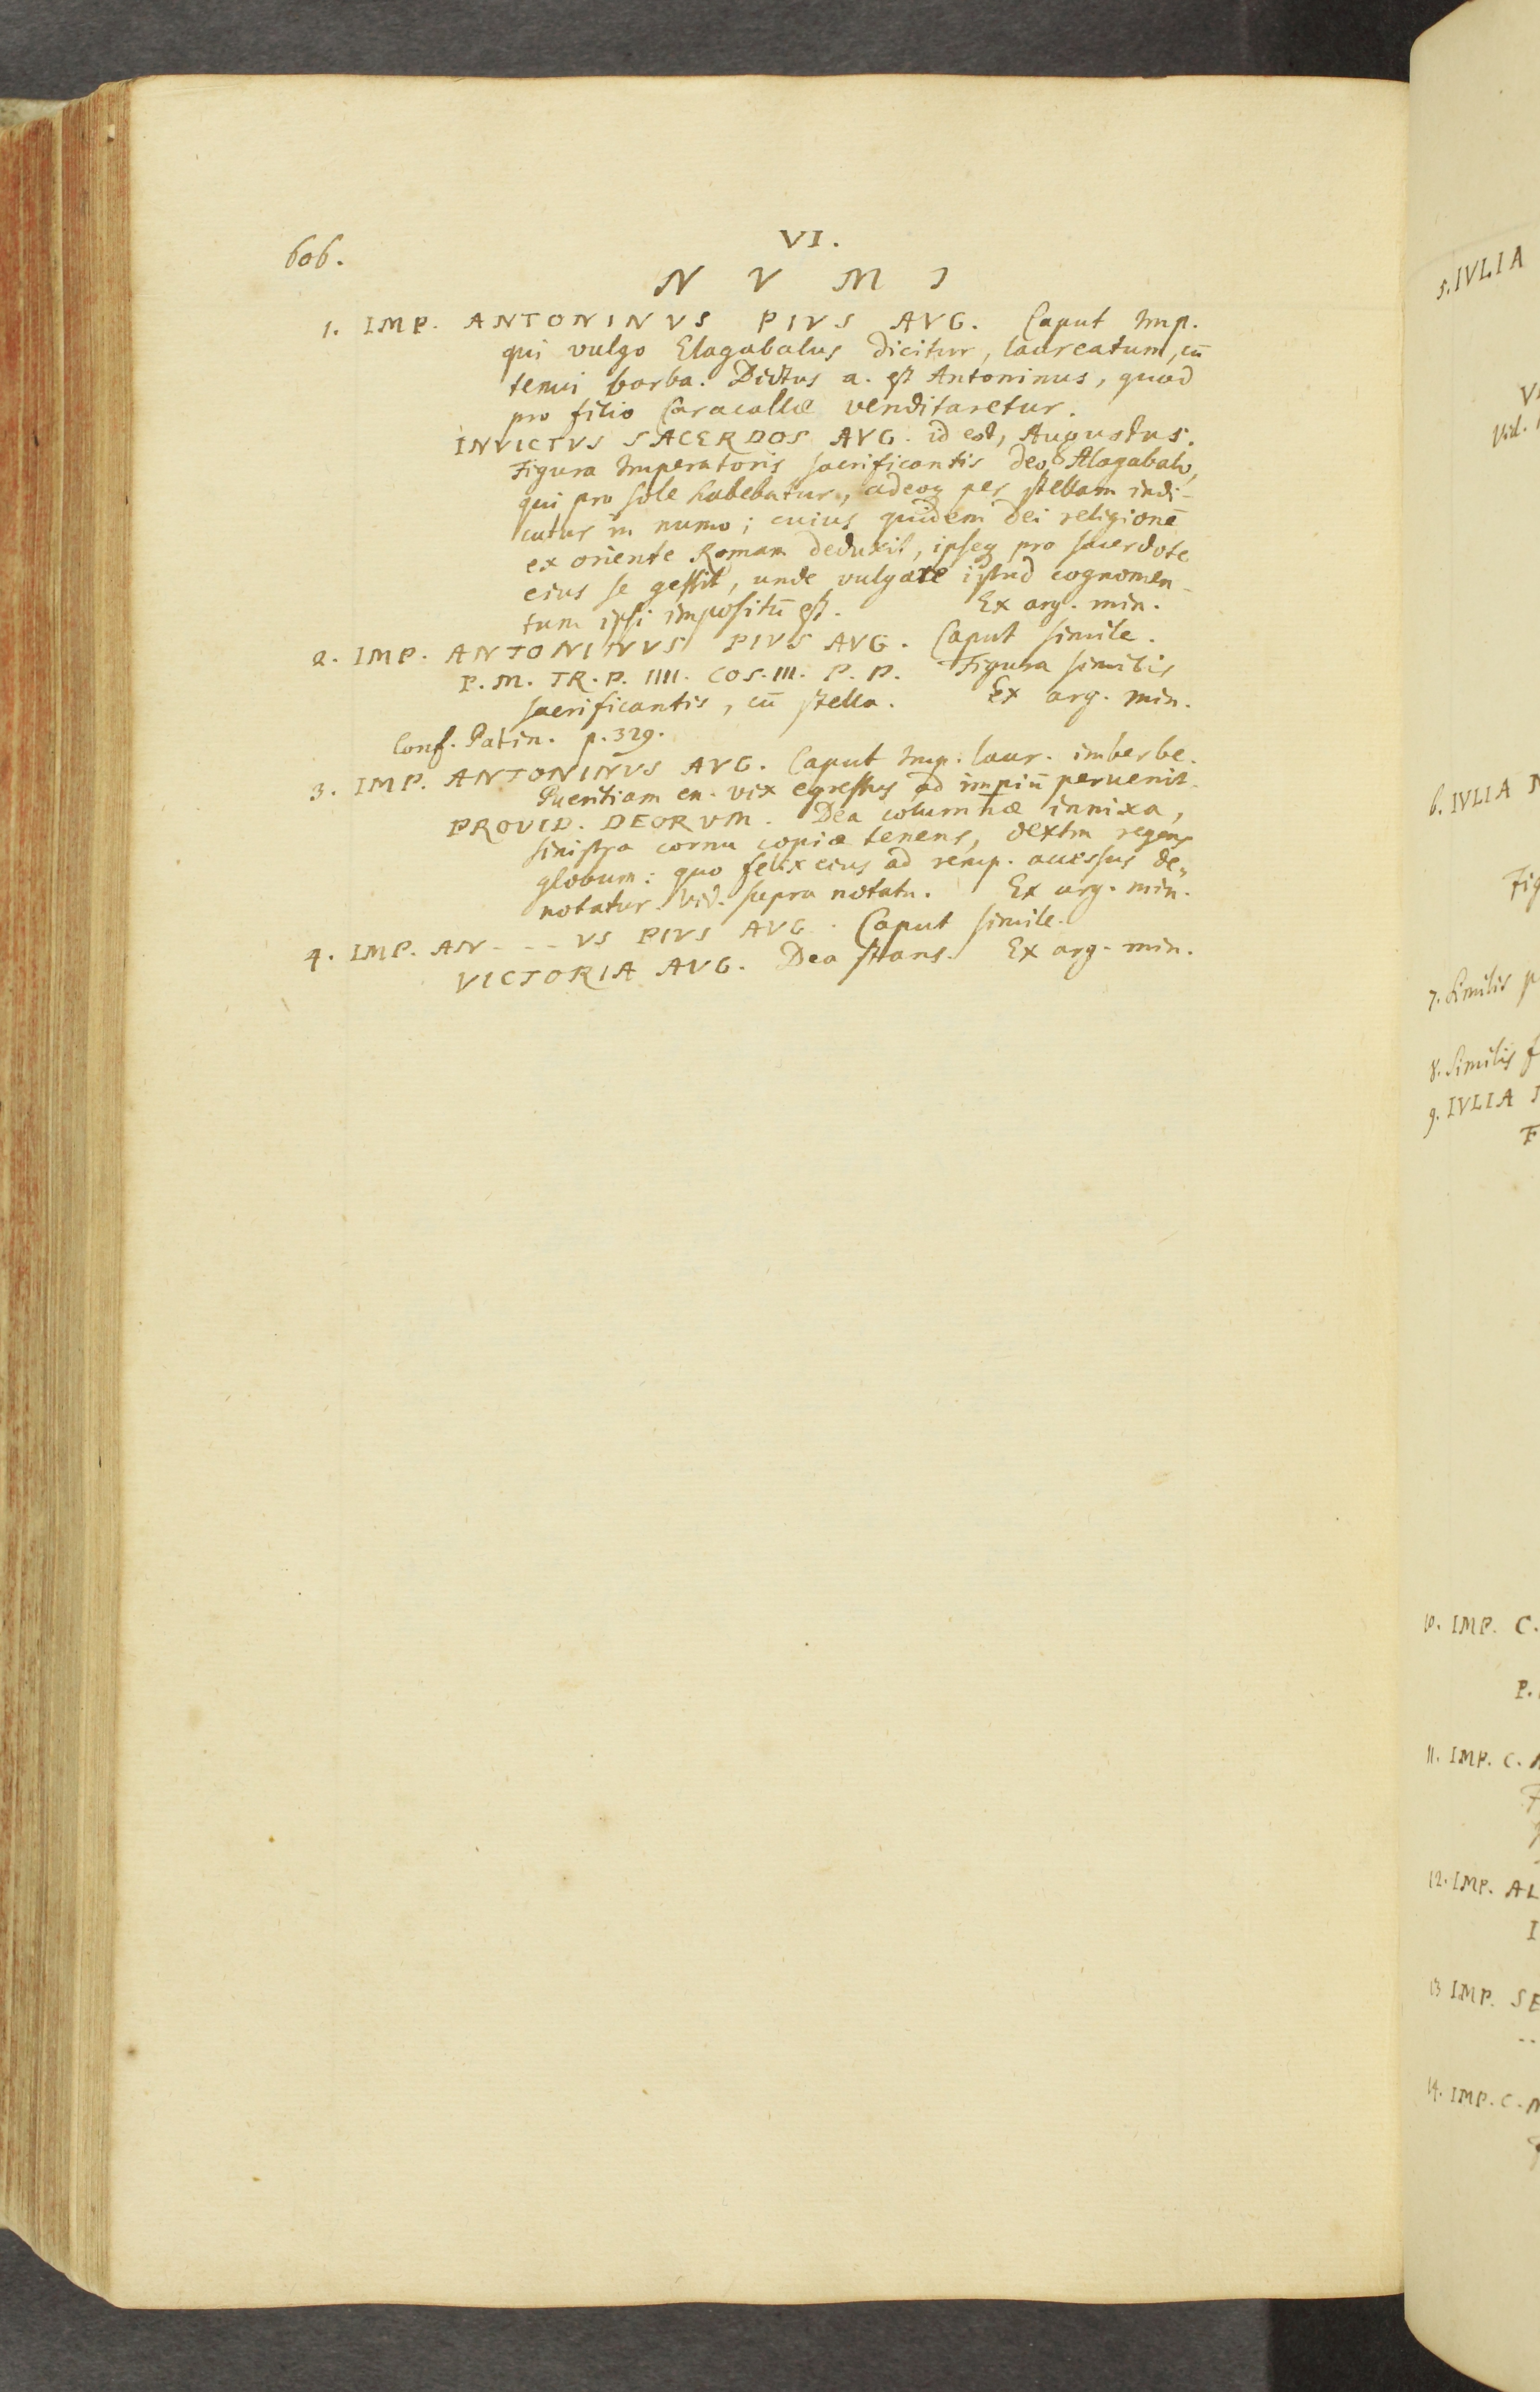 606.
VI.
N V M I
1. IMP. ANTONINVS PIVS AVG. Caput Imp.
qui vulgo Elagabalus dicitur, laureatum, cū
tenui barba. Dictus a. est Antoninus, quod
pro filio Caracallæ venditaretur.
INVICTVS SACERDOS AVG. id est, Augustus.
Figura Imperatoris sacrificantis deo Alagabalo,
qui pro sole habebatur, adeoq; per stellam indi-
catur in numo; cuius quidem dei religionē
ex oriente Romam deduxit, ipseq; pro sacerdote
eius se gessit, unde vulgare istud cognomen-
tum ipsi impositū est. Ex arg. min.
2. IMP. ANTONINVS PIVS AVG. Caput simile.
P. M. TR. P. IIII. COS. III. P. P. Figura similis
sacrificantis, cū stella. Ex arg. min.
Conf. Patin. p. 329.
3. IMP. ANTONINVS AVG. Caput Imp. laur. imberbe.
Pueritiam en. vix egressus ad impiū peruenit.
PROVID. DEORVM. Dea columnæ innixa,
sinistra cornu copiæ tenens, dextra regens
globum: quo felix eius ad remp. accessus de„
notatur. vid. supra notata. Ex arg. min.
4. IMP. AN - - - VS PIVS AVG. Caput simile.
VICTORIA AVG. Dea stans. Ex arg. min.
5. IVLIA
Vid.
6. IVLIA
Fig
7. Similis
8. Similis
9. IVLIA
F
10. IMP. C.
P.
11. IMP. C.
12. IMP. AL
I
13 IMP. SE
--
14. IMP. C.